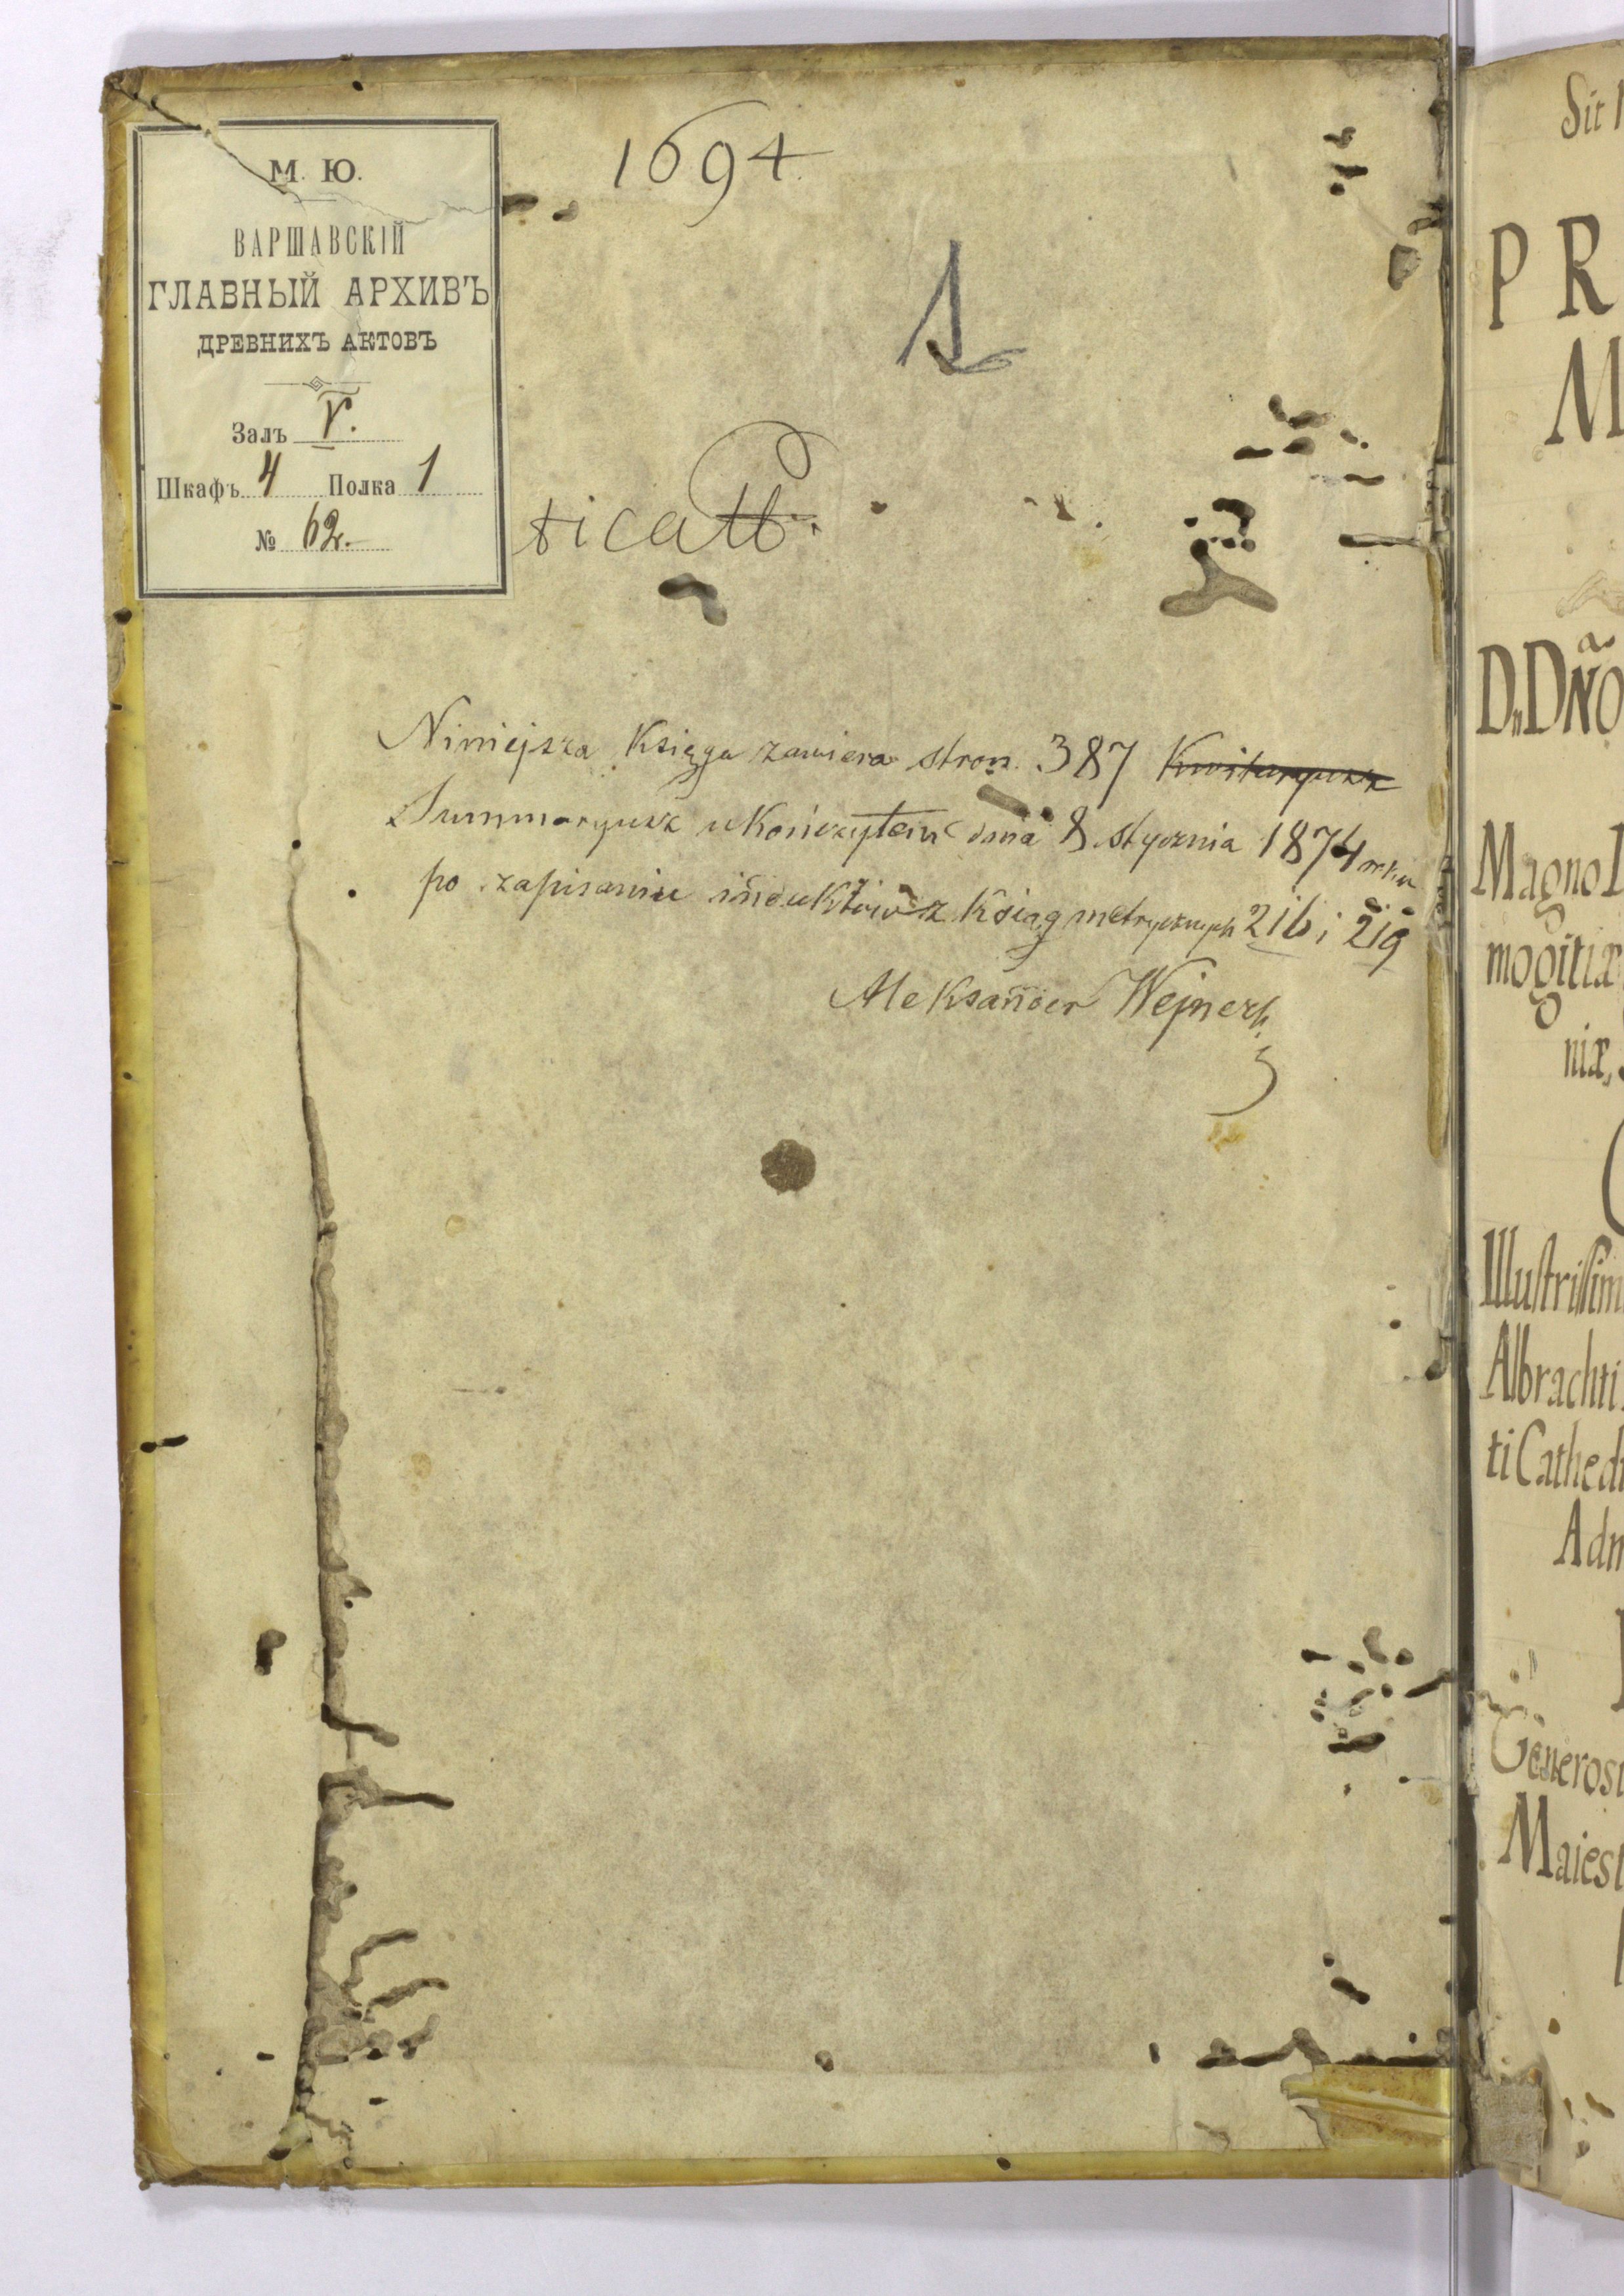 М. Ю.
ВАРШАВСКІЙ
ГЛАВНЫЙ АРХИВЪ
ДРЕВНИХЪ АКТОВЪ
Залъ V.
Шкафъ 4 Полка 1
№ 62.
1694
1
Niniejsza Księga zawiera stron. 387 Kwitaryusz
Summaryusz ukończyłem dnia 8 stycznia 1874 roku
po zapisaniu induktów z Ksiąg metrycznych 216 i 219
Aleksander Wejnert
Sit
PR
M
D,,DÑO
Magno
mogitiæ
niæ,
Illustrissim
Albrachti
ti Cathed
Adm
Generosi
Maiest